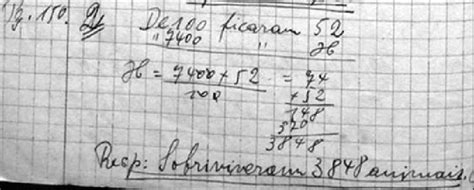 Pg. 150. 2) De 100 ficaram 52
" 7400 " H
H = 7400 + 52 = 74
100 + 52
148
370
3848
Resp: Sobriviveram 3848 animais.